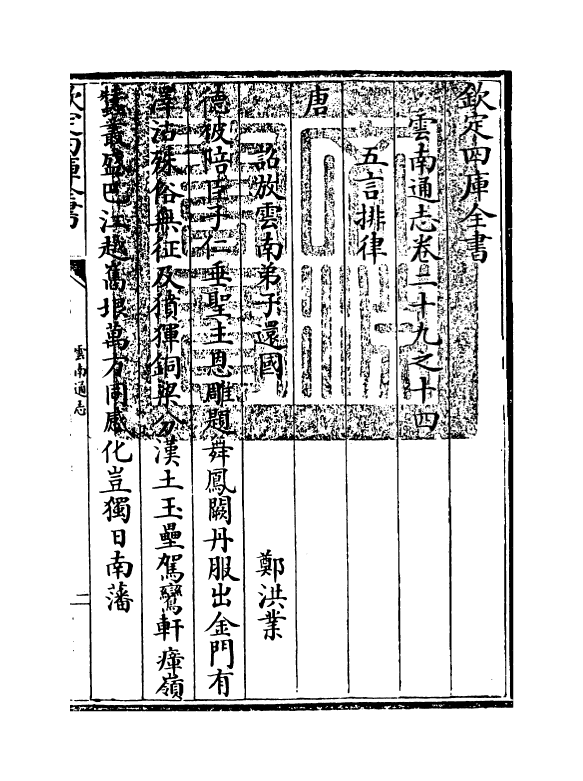 欽定四庫全書
雲南通志卷二十九之十四
五言排律
唐
詔放雲南弟子還國 鄭洪業
德被陪臣子仁垂聖主恩雕題舜鳳闕丹服出金門有
澤沾殊俗無征及獷 銅梁分漢土玉壘駕鸞軒瘴嶺
蠶叢盛巴江越嶲垠萬方同感化豈獨日南藩
欽定四庫全書
雲南通志